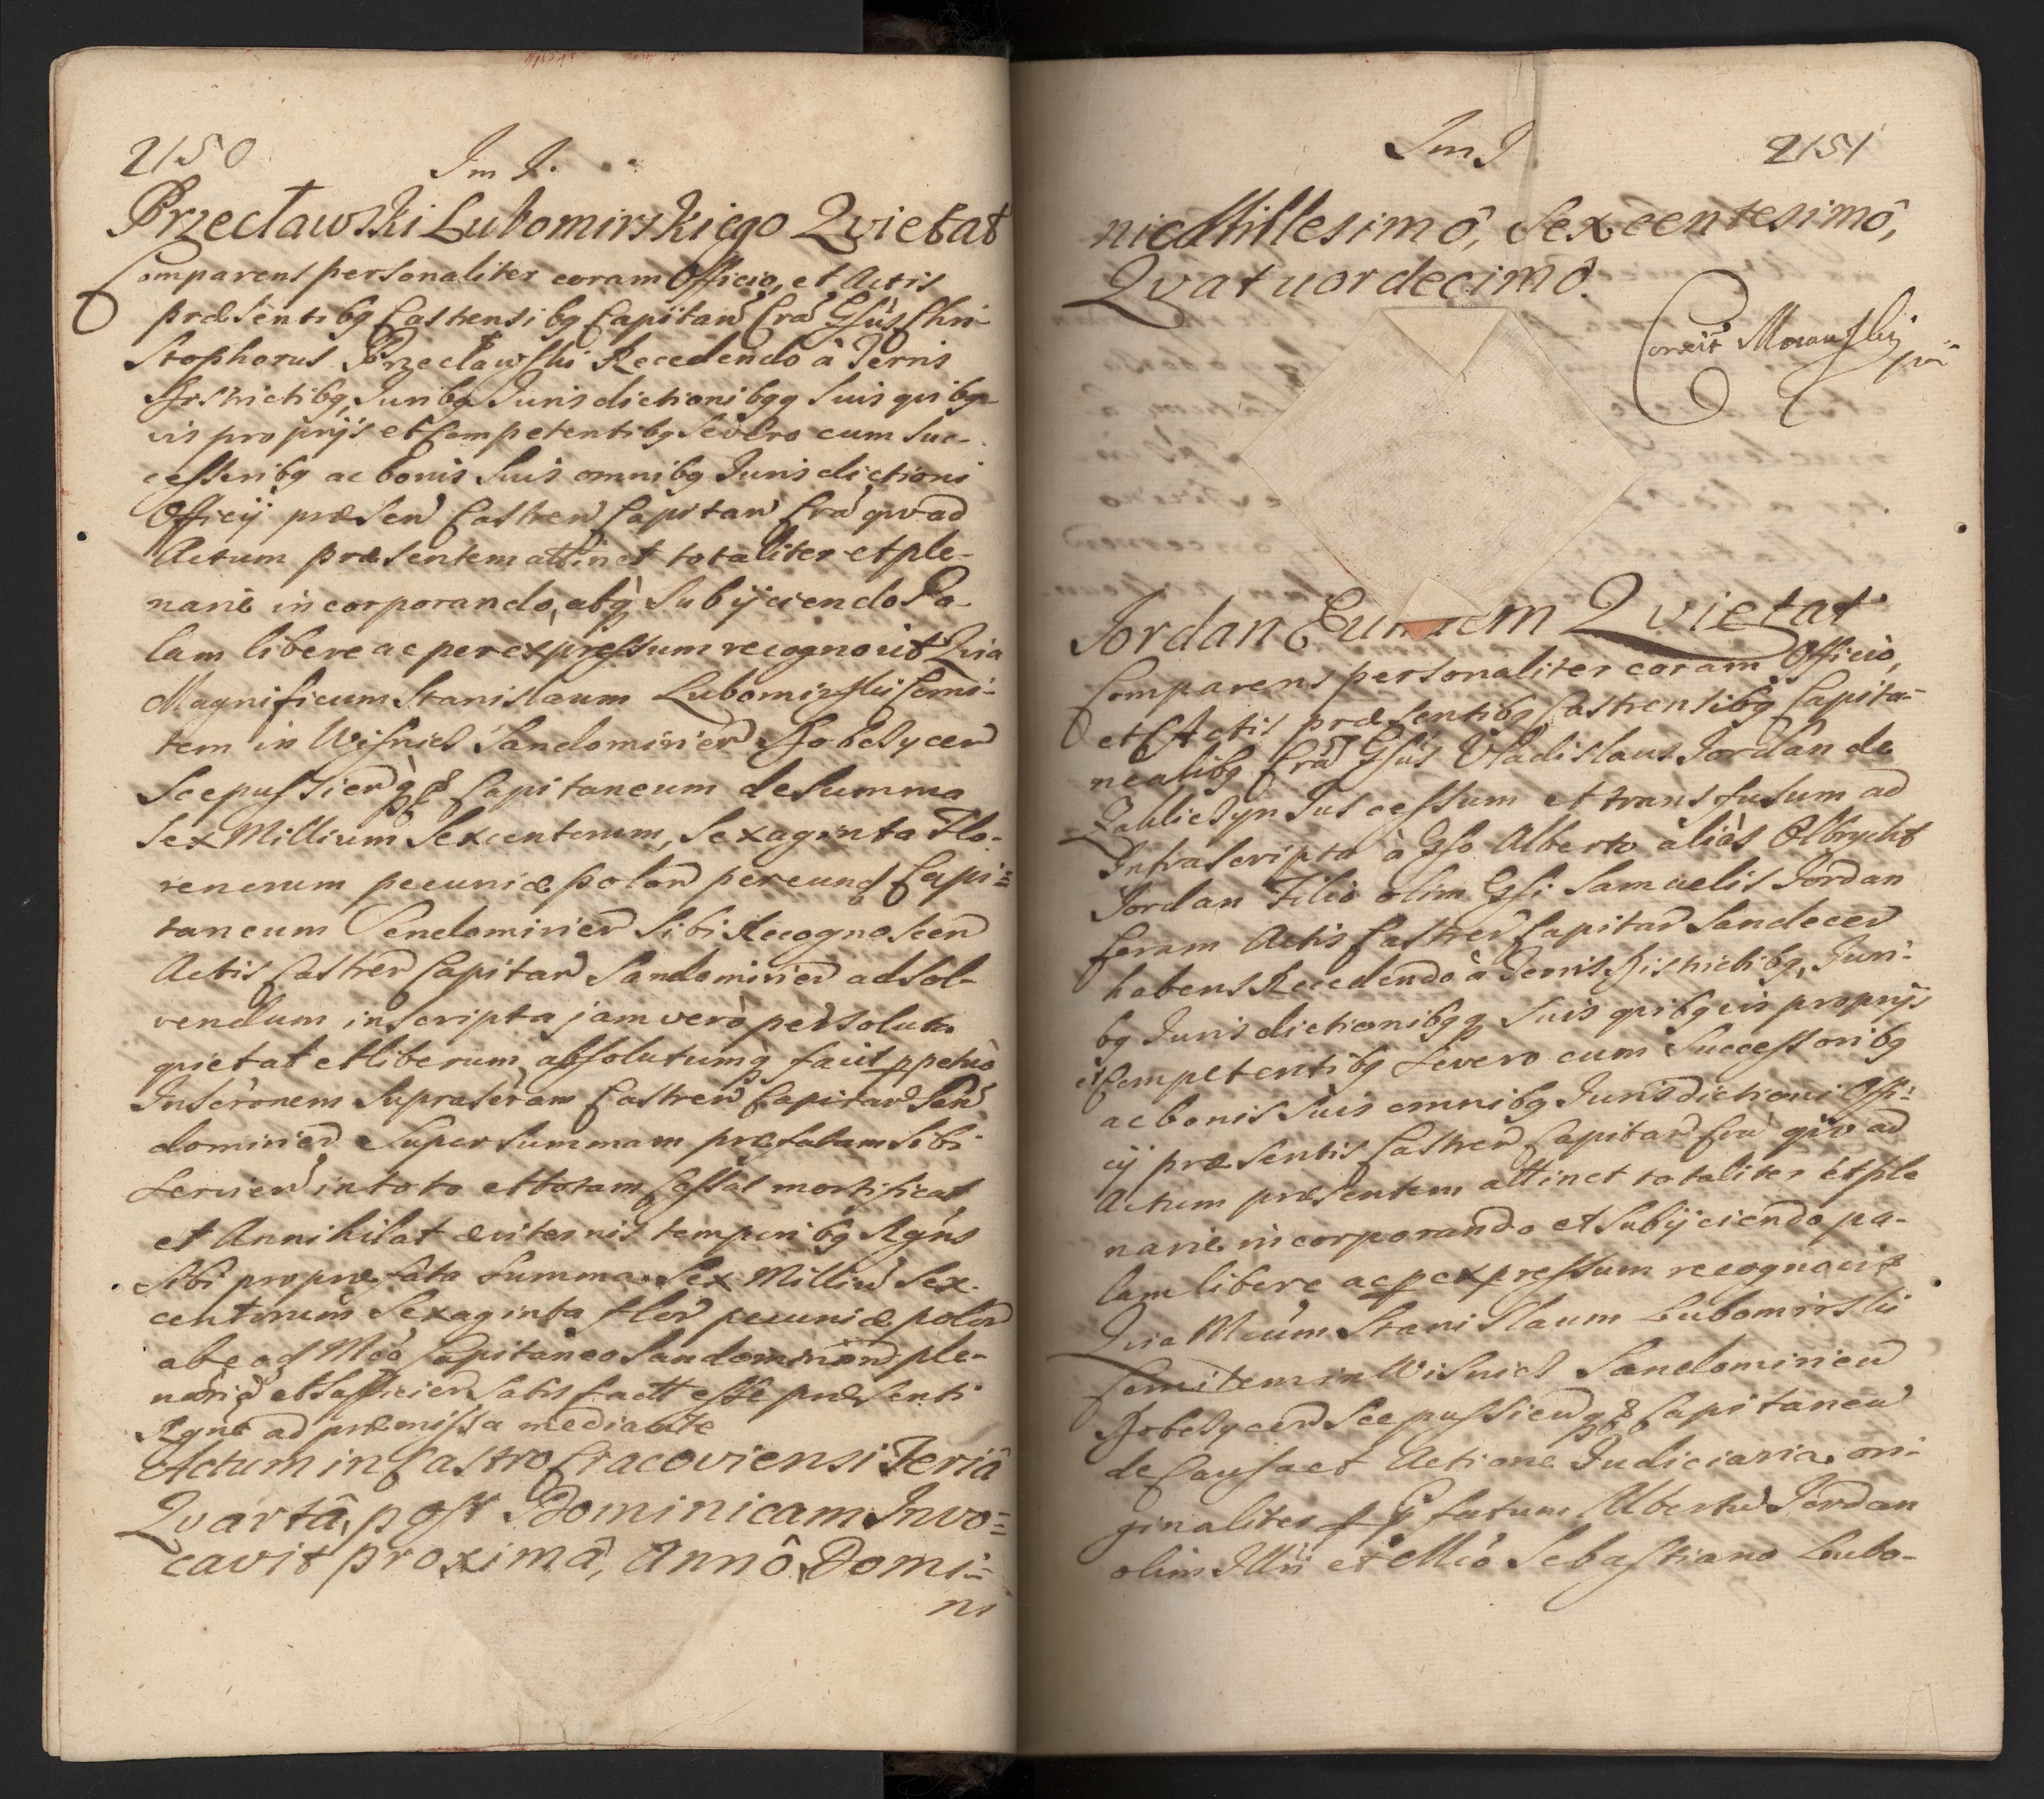 2150
Im J.
Przecławski Lubomirskiego Qvietat
Comparens personaliter coram Officio, et Actis
præsentibg Castrensibg Capitan Cra Gsus Chri-
stophorus Przecławski Recedendo à Terris
Districtibg, Juribg Jurisdictionibgq suis quibg-
vis proprijs et Competentibg se vero cum suc-
cessoribg ac bonis suis omnibg Jurisdictioni
Officij præsen Castren Capitan Cra quo ad
Actum præsentem attinet totaliter et ple-
narie incorporando, atq subijciendo Pa-
lam libere ac per expressum recognovit Quia
Magnificum Stanislaum Lubomirskii Comi-
tem in Wisnicz Sandomirien Dobczycen
Scepussien q & Capitaneum de Summa
Sex Millium Sexcentorum, Sexaginta Flo-
renorum pecuniæ polon per eund Capi=
taneum Sendomirien sibi Recognoscen
Actis Castren Capitan Sandomirien ad sol-
vendum inscripta jam verò persoluta
quietat et liberum, absolutumq facit ppetuò
Inscronem suprascram Castren Capitan San
domirien super summam præfatam sibi
servien in toto et totam Cassat mortificat
et Annihilat æviternis temporibg Rgns
sibi pro præfata summa Sex Milliu Sex-
centorum Sexaginta flor pecuniæ polon
ab eod Mco Capitaneo Sandomirien ple-
narie et sufficien satisfactt esse præsenti
Rgne ad præmissa mediante
Actum in Castro Cracoviensi Feriâ
Qvartâ, post Dominicam Invo=
cavit proximâ, Annô Domi=
ni
Im J
2151
nic Millesimô, Sexcentesimô,
Qvatuordecimô.
Correxit Morawski
Jordan Eundem Qvietat
Comparens personaliter coram Officio,
et Actis præsentibg Castrensibg Capita-
nealibg Cra Gsus Vladislaus Jordan de
Zakliczyn Jus cessum et transfusum ad
Infrascripta à Gso Alberto aliàs Olbrycht
Jordan Filio olim Gsi Samuelis Jordan
Coram Actis Castren Capitan Sandecen
habens Recedendo à Terris Districtibg, Juri-
bg Jurisdictionibgq suis quibgvis proprijs
et Competentibg se vero cum Successoribg
ac bonis suis omnibg Jurisdictioni Offi-
cij præsentis Castren Capitan Cra quo ad
Actum præsentem attinet totaliter et ple
narie incorporando et subijciendo pa-
lam libere ac p expressum recognovit
Quia Mcum Stanislaum Lubomirskii
Comitem in Wisnicz Sandomirien
Dobczycen Scepussien q & Capitaneu
de Causa et Actione Judiciaria ori-
ginaliter p pfatum Albertu Jordan
olim Illri et Mco Sebastiano Lubo-